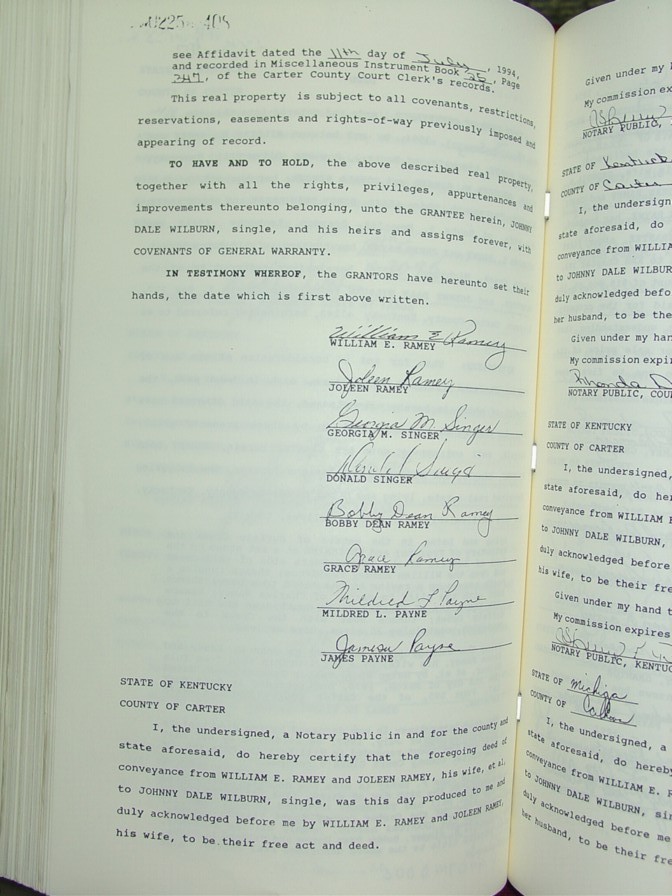 see Affidavit dated the 11th day of July, 1994,
and recorded in Miscellaneous Instrument Book 25, Page
347, of the Carter County Court Clerk's records.
This real property is subject to all covenants, restrictions,
reservations, easements and rights-of-way previously imposed and
appearing of record.
TO HAVE AND TO HOLD, the above described real property,
together with all the rights, privileges, appurtenances and
improvements thereunto belonging, unto the GRANTEE herein, JOHNNY
DALE WILBURN, single, and his heirs and assigns forever, with
COVENANTS OF GENERAL WARRANTY.
IN TESTIMONY WHEREOF, the GRANTORS have hereunto set their
hands, the date which is first above written.
William E Ramey
WILLIAM E. RAMEY
Joleen Ramey
JOLEEN RAMEY
Georgia M. Singer
GEORGIA M. SINGER
Donald Singer
DONALD SINGER
Bobby Dean Ramey
BOBBY DEAN RAMEY
Grace Ramey
GRACE RAMEY
Mildred L Payne
MILDRED L. PAYNE
James Payne
JAMES PAYNE
STATE OF KENTUCKY
COUNTY OF CARTER
I, the undersigned, a Notary Public in and for the county and
state aforesaid, do hereby certify that the foregoing deed of
conveyance from WILLIAM E. RAMEY and JOLEEN RAMEY, his wife, et al,
to JOHNNY DALE WILBURN, single, was this day produced to me and
duly acknowledged before me by WILLIAM E. RAMEY and JOLEEN RAMEY,
his wife, to be their free act and deed.
Given under my
My commission ex
NOTARY PUBLIC,
STATE OF Kentuck
COUNTY OF Carter
I, the undersign
state aforesaid, do
conveyance from WILLIA
to JOHNNY DALE WILBUR
duly acknowledged befo
her husband, to be the
Given under my han
My commission expi
Rhonda D
NOTARY PUBLIC, COU
STATE OF KENTUCKY
COUNTY OF CARTER
I, the undersigned,
state aforesaid, do he
conveyance from WILLIAM E
to JOHNNY DALE WILBURN,
duly acknowledged before
his wife, to be their fre
Given under my hand t
My commission expires
NOTARY PUBLIC, KENTUC
STATE OF
COUNTY OF
I, the undersigned, a
state aforesaid, do hereby
conveyance from WILLIAM E. R
to JOHNNY DALE WILBURN, sin
duly acknowledged before me
her husband, to be their fre